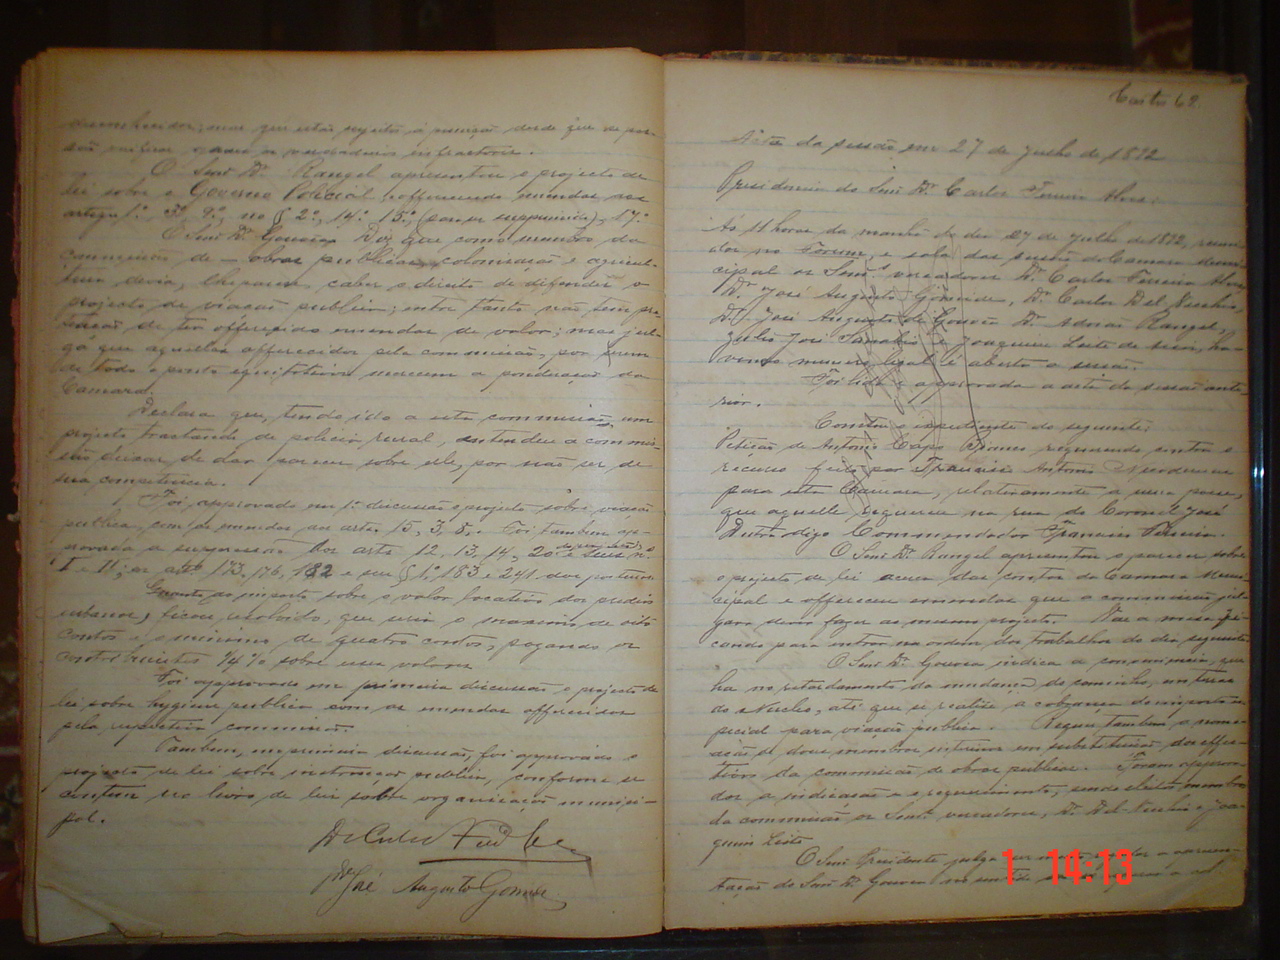 reconhecidos, mas que estão sujeitos à punição desde que se possão verificar quaes os verdadeiros infractores.
O Snr. Dr. Rangel apresentou o projecto de
lei sobre o Governo Policial offerecendo emendas aos
artigos 1º, 3º, 9º, no § 2º, 14º, 15º, (para ser supprimido), 17º
O Snr. Dr. Gouvêa Diz que como membro da
commissão de obras publicas, colonisação e agricul-
tura devia, lhe parece, caber o direito de defender o
projecto de viação publica; entretanto não tem pre-
tenção de ter offerecido emendas de valor; mas jul-
ga que aquellas offerecidas pela commissão, por serem
de todo o ponto equitativas merecem a ponderação da
Camara.
Declara que, tendo ido a esta commissão, um
projecto tractando de policia rural, entendeu a commis-
são deixar de dar parecer sobre elle, por não ser de
sua competencia.
Foi approvado em 1ª discussão o projecto sobre viação
publica, com as emendas aos artos 15, 3, 8, . Foi tambem ap-
provada a suppressão dos arts 12, 13, 14, 20
1 e 11; os artos 173, 176, 182 e seu § 1º 183 e 241 das posturas
Quanto ao imposto sobre o valor locativo dos predios
urbanos, ficou resolvido, que seria o maximo de oito
contos e o minimo de quatro contos, pagando os
contribuintes 1/4 % sobre esses valores
Foi approvado em primeira discussão o projecto de
lei sobre hygiene publica com as emendas offerecidas
pela respectiva commissão.
Tambem, em primeira discussão, foi approvado o
projecto de lei sobre instrucção publica, conforme se
contem no livro de leis sobre organisação munici-
pal.
Dr. José Augusto Gomes
Acta da sessão em 27 de Julho de 1892
Presidencia do Snr. Dr. Carlos Ferreira Alves.
Ás 11 horas da manhã do dia 27 de Julho de 1892, reuni-
dos no Forum, e sala das sessões da Camara Muni-
cipal os Snrs. vereadores Dr. Carlos Ferreira Alves,
Dr. José Augusto Gomide, Dr. Carlos Del Nechio,
Dr. José Augusto de Gouvêa Dr. Adorão Rangel,
Julio José e Joaquim Leite de ha-
vendo numero legal é aberta a sessão.
Foi lida e approvada a acta da sessão ante-
rior.
Constou o expediente do seguinte:
Petição de Antonio Capo requerendo contra o
recurso feito por Francisco Antonio
para esta Camara, relativamente a uma posse,
que aquelle requereu na rua do Coronel José
Dutra digo Commendador Francisco
O Snr. Dr. Rangel apresentou o parecer sobre
o projecto de lei acerca das contas da Camara Muni-
cipal e offereceu emendas que a commissão jul-
gara dever fazer ao mesmo projecto. Vae a mesa fi-
cando para entrar na ordem dos trabalhos do dia seguinte
O Snr. Dr. Gouvêa indica a conveniencia, que
ha no retardamento da mudança do caminho, em terras
do Nucleo, até que se realise a cobrança do imposto es-
pecial para viação publica. Requer tambem a nome-
ação de dous membros interinos em substituição dos effec-
tivos da commissão de obras publicas. Foram approva-
dos a indicação e o requerimento, sendo eleitos membros
da commissão os Snrs. vereadores, Dr. Del Nechio e Joa-
quim Leite
O Snr. Presidente julga
tação do Snr. Dr. Gouvêa
1 14:13